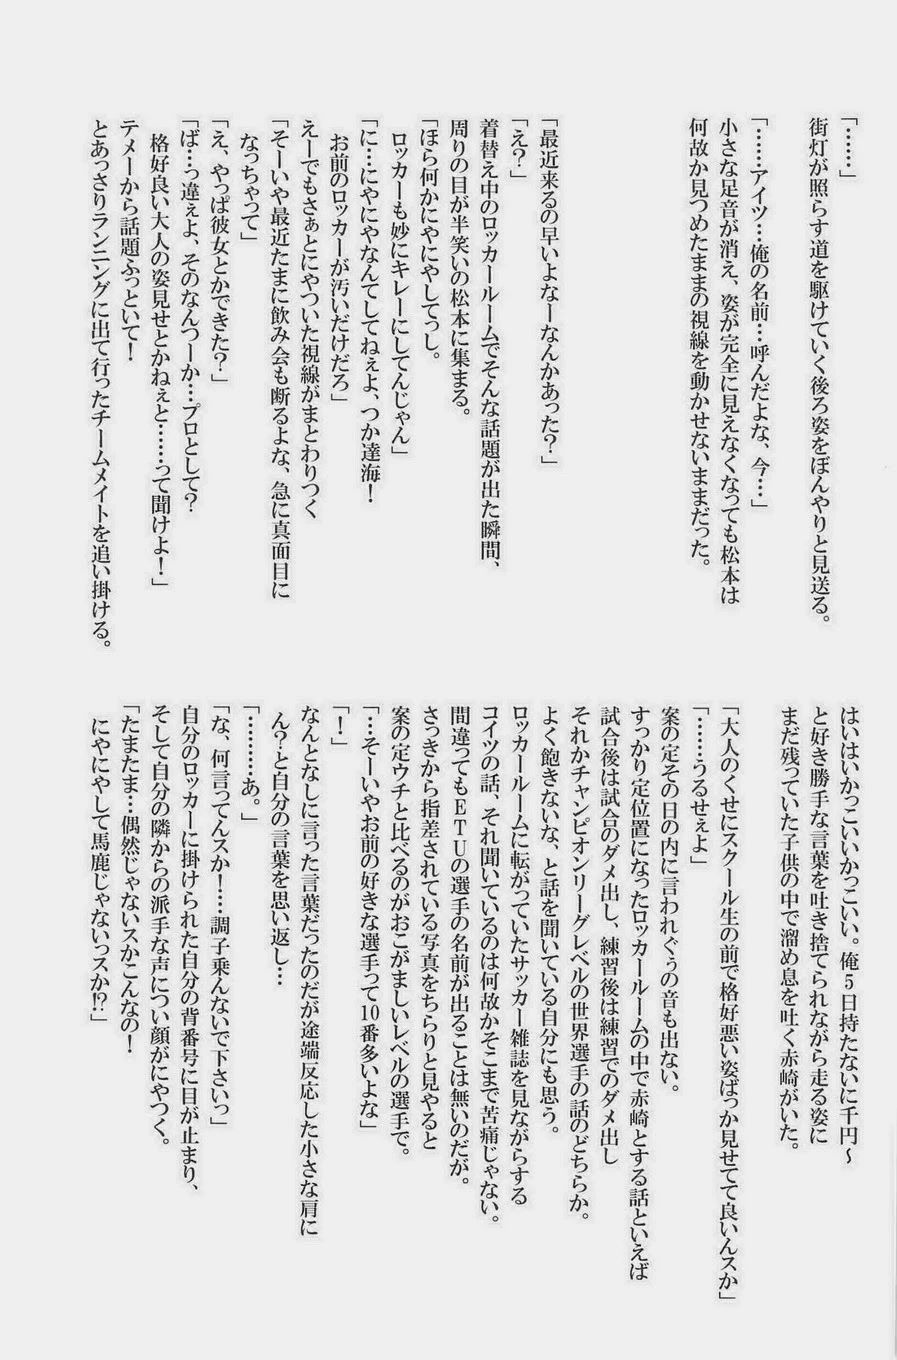 「……」
街灯が照らす道を駆けていく後ろ姿をぼんやりと見送る。
「……アイツ…俺の名前…呼んだよな、今…」
小さな足音が消え、姿が完全に見えなくなっても松本は
何故か見つめたままの視線を動かせないままだった。
「最近来るの早いよなーなんかあった？」
「え？」
着替え中のロッカールームでそんな話題が出た瞬間、
周りの目が半笑いの松本に集まる。
「ほら何かにやにやしてっし。
ロッカーも妙にキレーにしてんじゃん」
「に…にやにやなんてしてねぇよ、つか達海！
お前のロッカーが汚いだけだろ」
えーでもさぁとにやついた視線がまとわりつく
「そーいや最近たまに飲み会も断るよな、急に真面目に
なっちゃって」
「え、やっぱ彼女とかできた？」
「ば…っ違ぇよ、そのなんつーか…プロとして？
格好良い大人の姿見せとかねぇと……って聞けよ！」
テメーから話題ふっといて！
とあっさりランニングに出て行ったチームメイトを追い掛ける。
はいはいかっこいいかっこい。俺５日持たないに千円～
と好き勝手な言葉を吐き捨てられながら走る姿に
まだ残っていた子供の中で溜め息を吐く赤崎がいた。
「大人のくせにスクール生の前で格好悪い姿ばっか見せてて良いんスか」
「……うるせぇよ」
案の定その日の内に言われぐぅの音も出ない。
すっかり定位置になったロッカールームの中で赤崎とする話といえば
試合後は試合のダメ出し、練習後は練習でのダメ出し
それかチャンピオンリーグレベルの世界選手の話のどちらか。
よく飽きないな、と話を聞いている自分にも思う。
ロッカールームに転がっていたサッカー雑誌を見ながらする
コイツの話、それ聞いているのは何故かそこまで苦痛じゃない。
間違ってもＥＴＵの選手の名前が出ることは無いのだが。
さっきから指差されている写真をちらりと見やると
案の定ウチと比べるのがおこがましいレベルの選手で。
「…そーいやお前の好きな選手って10番多いよな」
「！」
なんとなしに言った言葉だったのだが途端反応した小さな肩に
ん？と自分の言葉を思い返し…
「………あ。」
「な、何言ってんスか！…調子乗んないで下さいっ」
自分のロッカーに掛けられた自分の背番号に目が止まり、
そして自分の隣からの派手な声につい顔がにやつく。
「たまたま…偶然じゃないスかこんなの！
にやにやして馬鹿じゃないっスか!?」